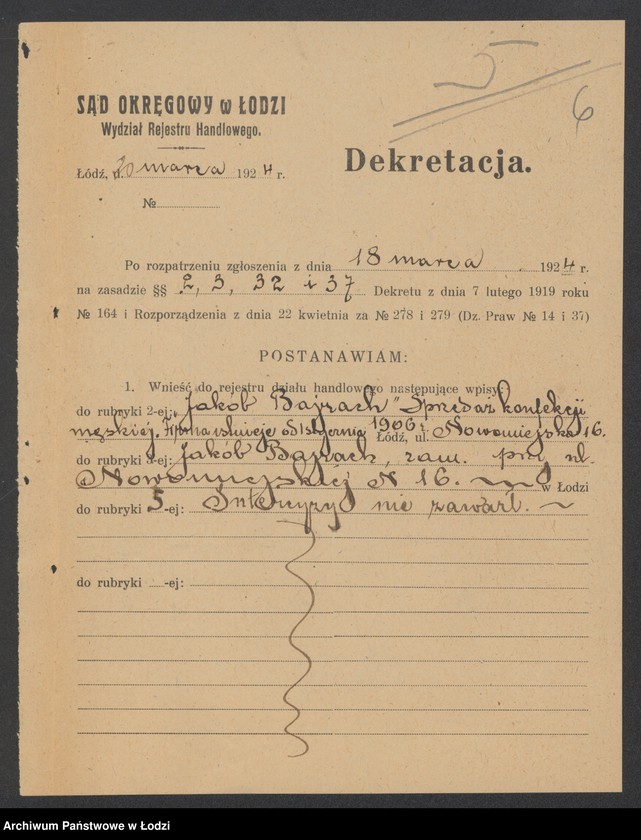 5
6
SĄD OKRĘGOWY w ŁODZI
Wydział Rejestru Handlowego.
Łódź, d. 20 marca 1924 r.
Dekretacja.
№
Po rozpatrzeniu zgłoszenia z dnia 18 marca 1924 r.
na zasadzie §§ 2, 3, 32 i 37 Dekretu z dnia 7 lutego 1919 roku
№ 164 i Rozporządzenia z dnia 22 kwietnia za № 278 i 279 (Dz. Praw № 14 i 37)
POSTANAWIAM:
1. Wnieść do rejestru działu handlowego następujące wpisy:
do rubryki 2-ej: „Jakób Bajrach" Sprzedaż konfekcji
męskiej. Firma istnieje od 1 stycznia 1906 r. Łódź, ul. Nowomiejska 16.
do rubryki 3-ej: Jakób Bajrach, zam. przy ul.
Nowomiejskiej № 16. w Łodzi
do rubryki 5-ej: Intercyzy nie zawarł.
do rubryki -ej:
Archiwum Państwowe w Łodzi